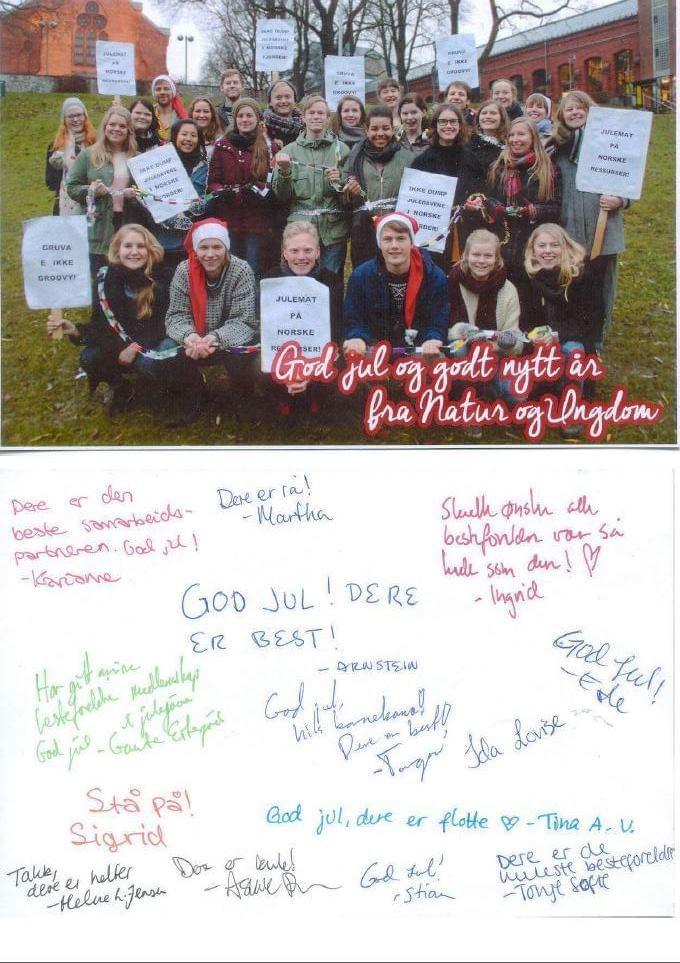 JULEMAT
PÅ
NORSKE
RESSURSER!
IKKE DUMP
JULEGAVENE
I NORSKE
FJORDER!
GRUVA
E IKKE
GROOVY!
GRUVA
E IKKE
GROOVY!
IKKE DUMP
JULEGAVENE
I NORSKE
FJORDER!
JULEMAT
PÅ
NORSKE
RESSURSER!
IKKE DUMP
JULEGAVENE
I NORSKE
FJORDER!
GRUVA
E IKKE
GROOVY!
JULEMAT
PÅ
NORSKE
RESSURSER!
God jul og godt nytt år
fra Natur og Ungdom
Dere er den
beste samarbeids-
partneren. God jul!
- Karianne
Dere er rå!
- Martha
Skulle ønske alle
besteforeldre var så
kule som dere! ♡
- Ingrid
GOD JUL! DERE
ER BEST!
- ARNSTEIN
God jul!
Har gitt mine
besteforeldre medlemskap
i julegave
God jul - Gaute
God jul,
hils barnebarna!
Dere er best!
Ida Louise
Stå på!
Sigrid
God jul, dere er flotte ♡ - Tina A. V.
Takk,
dere er helter
- Helene L. Jensen
Dere er
God jul!
- Stian
Dere er de
kuleste besteforeldre
- Tonje Sofie